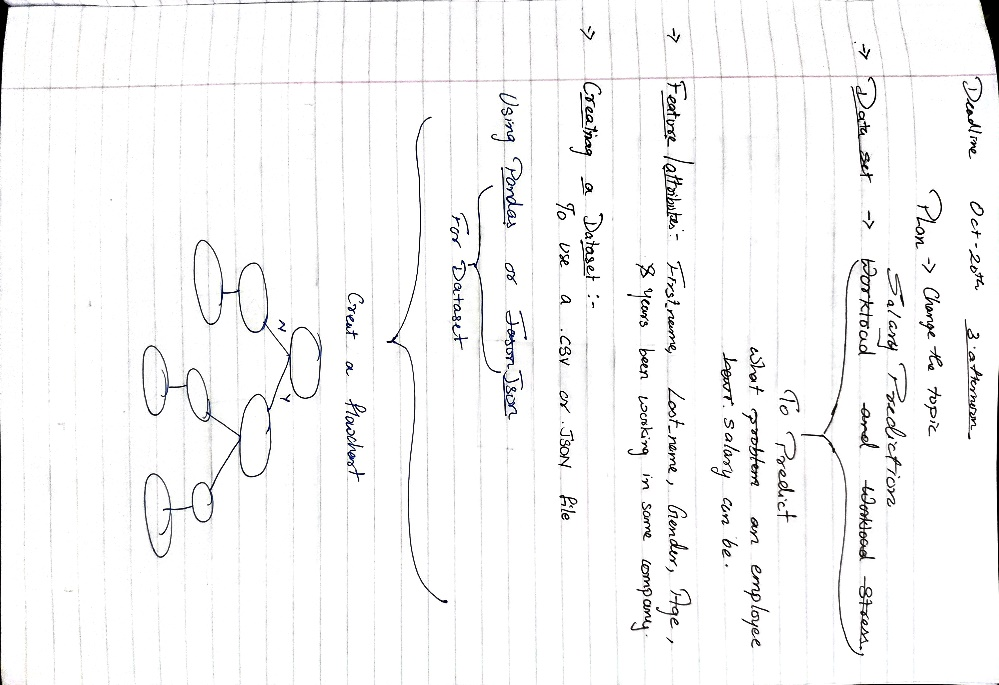 Deadline Oct-20th 3.afternoon
Plan → Change the topic
Salary Prediction
→ Data set → Workload and Workload Stress,
To Predict
What problem an employee
salary can be.
→ Feature/attributes:- First_name, Last_name, Gender, Age,
& years been working in same company.
→ Creating a Dataset :-
To use a .csv or .JSON file
Using Pandas or Jason Json
For Dataset
Creat a flowchart
N Y